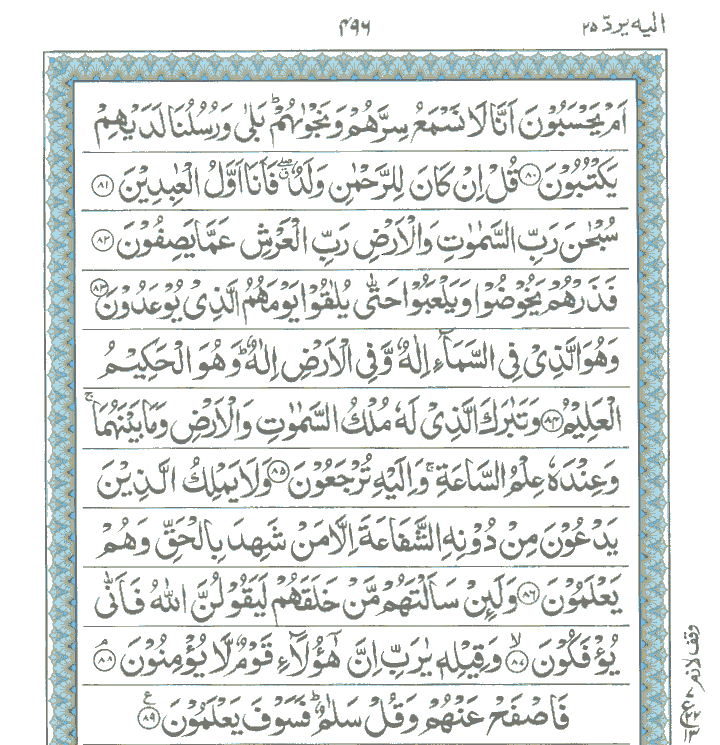 الیه یردّ ۲۵
۴۹۶
اَمۡ یَحۡسَبُوۡنَ اَنَّا لَا نَسۡمَعُ سِرَّهُمۡ وَ نَجۡوٰىهُمۡ ؕ بَلٰی وَ رُسُلُنَا لَدَیۡهِمۡ
یَكۡتُبُوۡنَ ﴿۸۰﴾ قُلۡ اِنۡ كَانَ لِلرَّحۡمٰنِ وَلَدٌ ٭ۖ فَاَنَا اَوَّلُ الۡعٰبِدِیۡنَ ﴿۸۱﴾
سُبۡحٰنَ رَبِّ السَّمٰوٰتِ وَ الۡاَرۡضِ رَبِّ الۡعَرۡشِ عَمَّا یَصِفُوۡنَ ﴿۸۲﴾
فَذَرۡهُمۡ یَخُوۡضُوۡا وَ یَلۡعَبُوۡا حَتّٰی یُلٰقُوۡا یَوۡمَهُمُ الَّذِیۡ یُوۡعَدُوۡنَ ﴿۸۳﴾
وَ هُوَ الَّذِیۡ فِی السَّمَآءِ اِلٰهٌ وَّ فِی الۡاَرۡضِ اِلٰهٌ ؕ وَ هُوَ الۡحَكِیۡمُ
الۡعَلِیۡمُ ﴿۸۴﴾ وَ تَبٰرَكَ الَّذِیۡ لَهٗ مُلۡكُ السَّمٰوٰتِ وَ الۡاَرۡضِ وَ مَا بَیۡنَهُمَا ۚ
وَ عِنۡدَهٗ عِلۡمُ السَّاعَةِ ۚ وَ اِلَیۡهِ تُرۡجَعُوۡنَ ﴿۸۵﴾ وَ لَا یَمۡلِكُ الَّذِیۡنَ
یَدۡعُوۡنَ مِنۡ دُوۡنِهِ الشَّفَاعَةَ اِلَّا مَنۡ شَهِدَ بِالۡحَقِّ وَ هُمۡ
یَعۡلَمُوۡنَ ﴿۸۶﴾ وَ لَئِنۡ سَاَلۡتَهُمۡ مَّنۡ خَلَقَهُمۡ لَیَقُوۡلُنَّ اللّٰهُ فَاَنّٰی
یُؤۡفَكُوۡنَ ﴿ۙ۸۷﴾ وَ قِیۡلِهٖ یٰرَبِّ اِنَّ هٰۤؤُلَآءِ قَوۡمٌ لَّا یُؤۡمِنُوۡنَ ﴿ۘ۸۸﴾
فَاصۡفَحۡ عَنۡهُمۡ وَ قُلۡ سَلٰمٌ ؕ فَسَوۡفَ یَعۡلَمُوۡنَ ﴿۸۹﴾ ع
وقف لازم